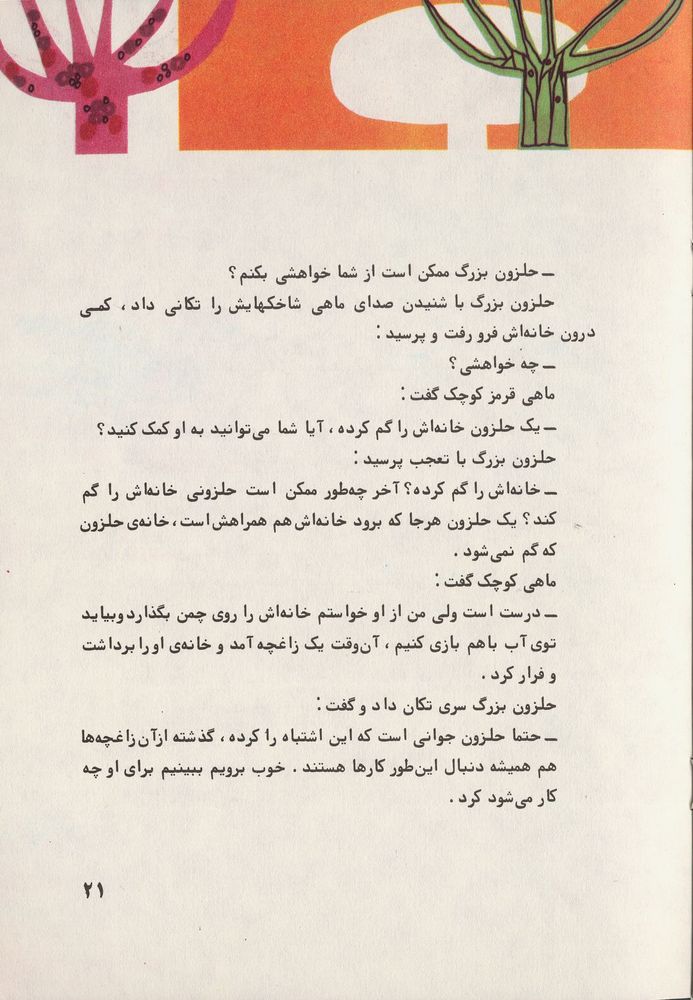 ـ حلزون بزرگ ممکن است از شما خواهشی بکنم؟
حلزون بزرگ با شنیدن صدای ماهی شاخکهایش را تکانی داد، کمی
درون خانه‌اش فرو رفت و پرسید:
ـ چه خواهشی؟
ماهی قرمز کوچک گفت:
ـ یک حلزون خانه‌اش را گم کرده، آیا شما می‌توانید به او کمک کنید؟
حلزون بزرگ با تعجب پرسید:
ـ خانه‌اش را گم کرده؟ آخر چه‌طور ممکن است حلزونی خانه‌اش را گم
کند؟ یک حلزون هرجا که برود خانه‌اش هم همراهش است، خانه‌ی حلزون
که گم نمی‌شود.
ماهی کوچک گفت:
ـ درست است ولی من از او خواستم خانه‌اش را روی چمن بگذارد وبیاید
توی آب باهم بازی کنیم، آن‌وقت یک زاغچه آمد و خانه‌ی او را برداشت
و فرار کرد.
حلزون بزرگ سری تکان داد و گفت:
ـ حتما حلزون جوانی است که این اشتباه را کرده، گذشته ازآن زاغچه‌ها
هم همیشه دنبال این‌طور کارها هستند. خوب برویم ببینیم برای او چه
کار می‌شود کرد.
۲۱